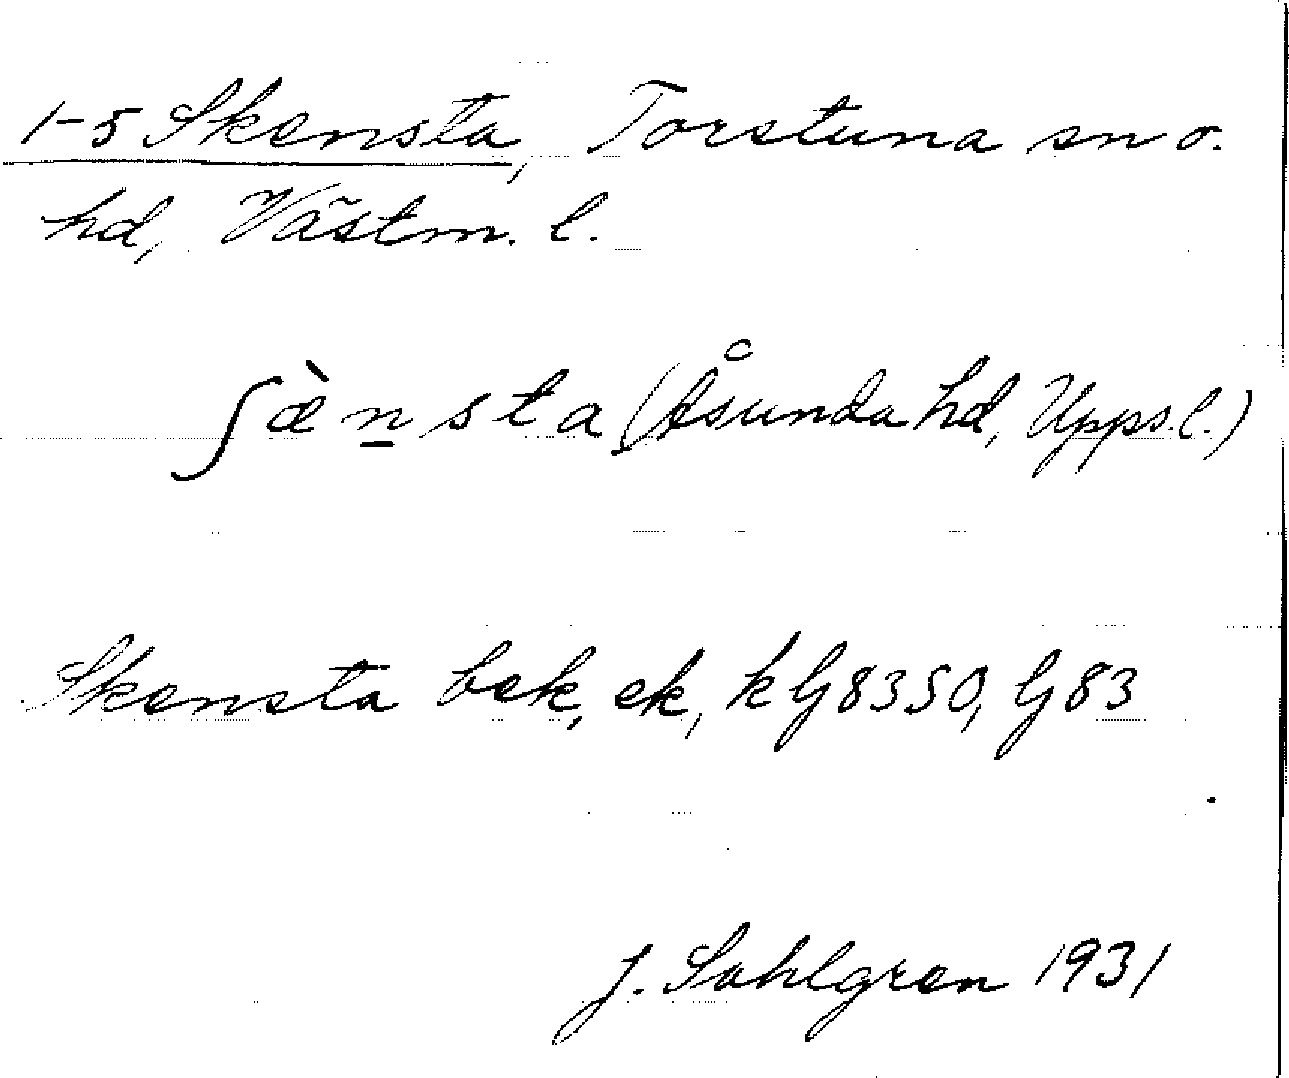 1-5 Skensta, Torstuna sn o.
hd, Västm. l.
ʃæ̀n̲sta (Åsunda hd, Upps. l.)
Skensta bek, ek, k Gj 8350, Gj 83
J. Sahlgren 1931